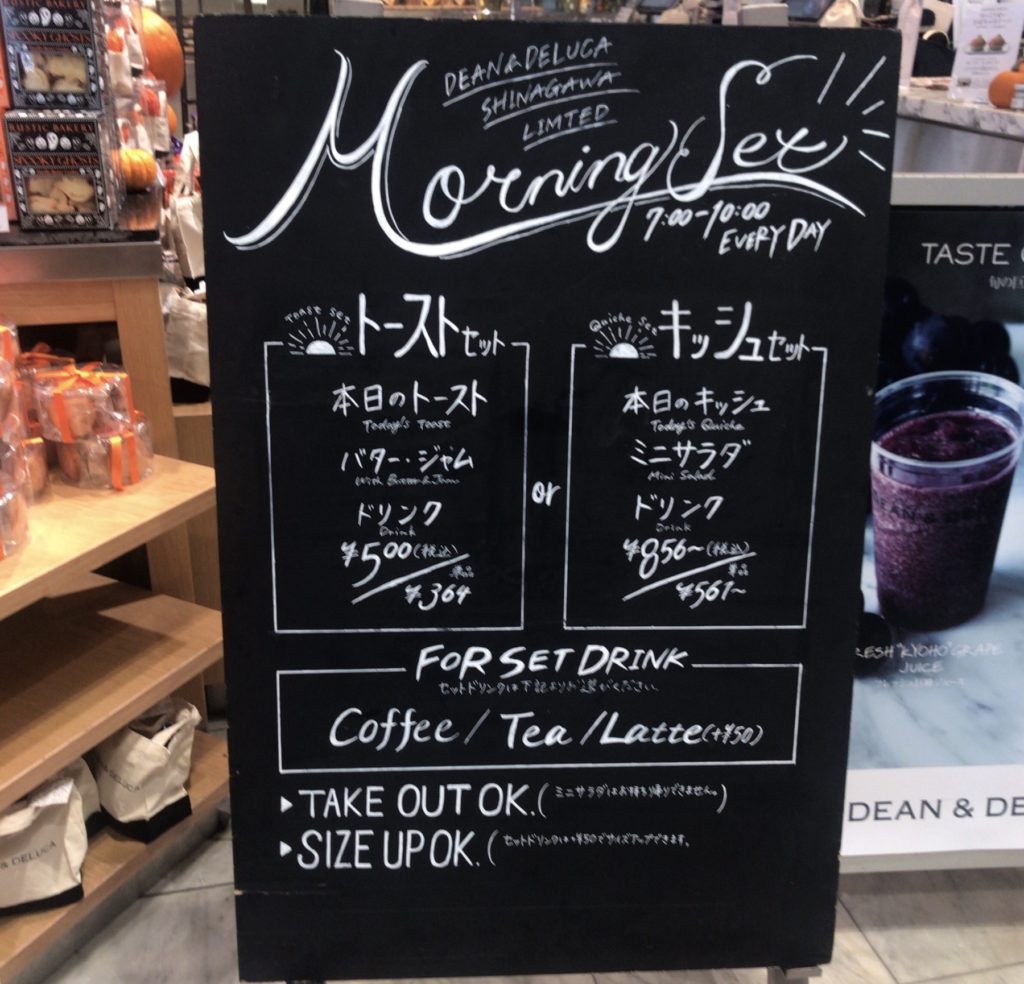 DEAN & DELUCA
SHINAGAWA
LIMTED
Morning Set
7:00-10:00
EVERY DAY
Toast Set
トーストセット
本日のトースト
Today's Toast
バター・ジャム
ドリンク
Drink
¥500(税込)
単品
¥364
or
Quiche Set
キッシュセット
本日のキッシュ
Today's Quiche
ミニサラダ
Mini Salad
ドリンク
Drink
¥856~(税込)
単品
¥561~
FOR SET DRINK
セットドリンクは下記よりお選びください
Coffee / Tea / Latte(+¥50)
▶TAKE OUT OK.(ミニサラダはお持ち帰りできません。)
▶SIZE UP OK.(セットドリンクは+¥50でサイズアップできます。
RUSTIC BAKERY
SPOOKY GHOSTS
RUSTIC BAKERY
SPOOKY GHOSTS
& DELUCA
TASTE
RESH "KYOHO" GRAPE
JUICE
DEAN & DE